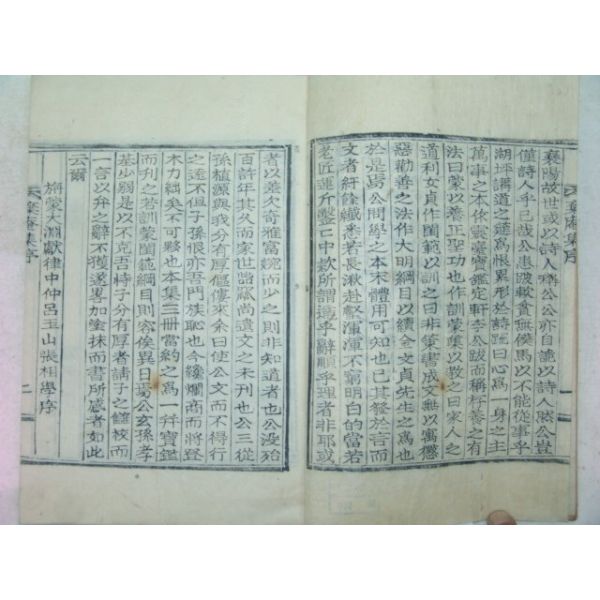 襄陽故世或以詩人稱公公亦自謙以詩人然公豈
僅詩人乎已哉公患跛軟貧無僕馬以不能從事乎
湖坪講道之筵爲恨累形於詩疏曰心爲一身之主
萬事之本依靈臺寶鑑定軒李公跋而稱梓菴之有
法曰蒙以養正聖功也作訓蒙篇以敎之曰家人之
道利女貞作閨範以訓之曰非策書成文無以寓懲
惡勸善之法作大明綱目以續全文貞先生之爲也
於是焉公問學之本末體用可知也已其發於言而
文者紆餘纖悉若長湫赴壑渾渾不窮明白的當若
老匠運斤鑿鑿中款所謂適乎辭順乎理者非耶或
者以差欠奇雅富婉而少之則非知道者也公沒殆
百許年其久而家世詒藏尚遺文之未刊也公三從
孫植源與我分有厚傴僂來余曰使公文而不得行
之遠不但子孫恨亦吾門族恥也今纔爛商而將登
木力綿矣不可夥也本集三冊當約之爲一幷寶鑑
而刊之若訓蒙閨範綱目則容俟異日焉公玄孫孝
基少弱是以不克吾時子分有厚者請子之讎校而
一言以弁之辭不獲遂畧加塗抹而書所感者如此
云爾
旃蒙大淵獻律中仲呂玉山張相學序